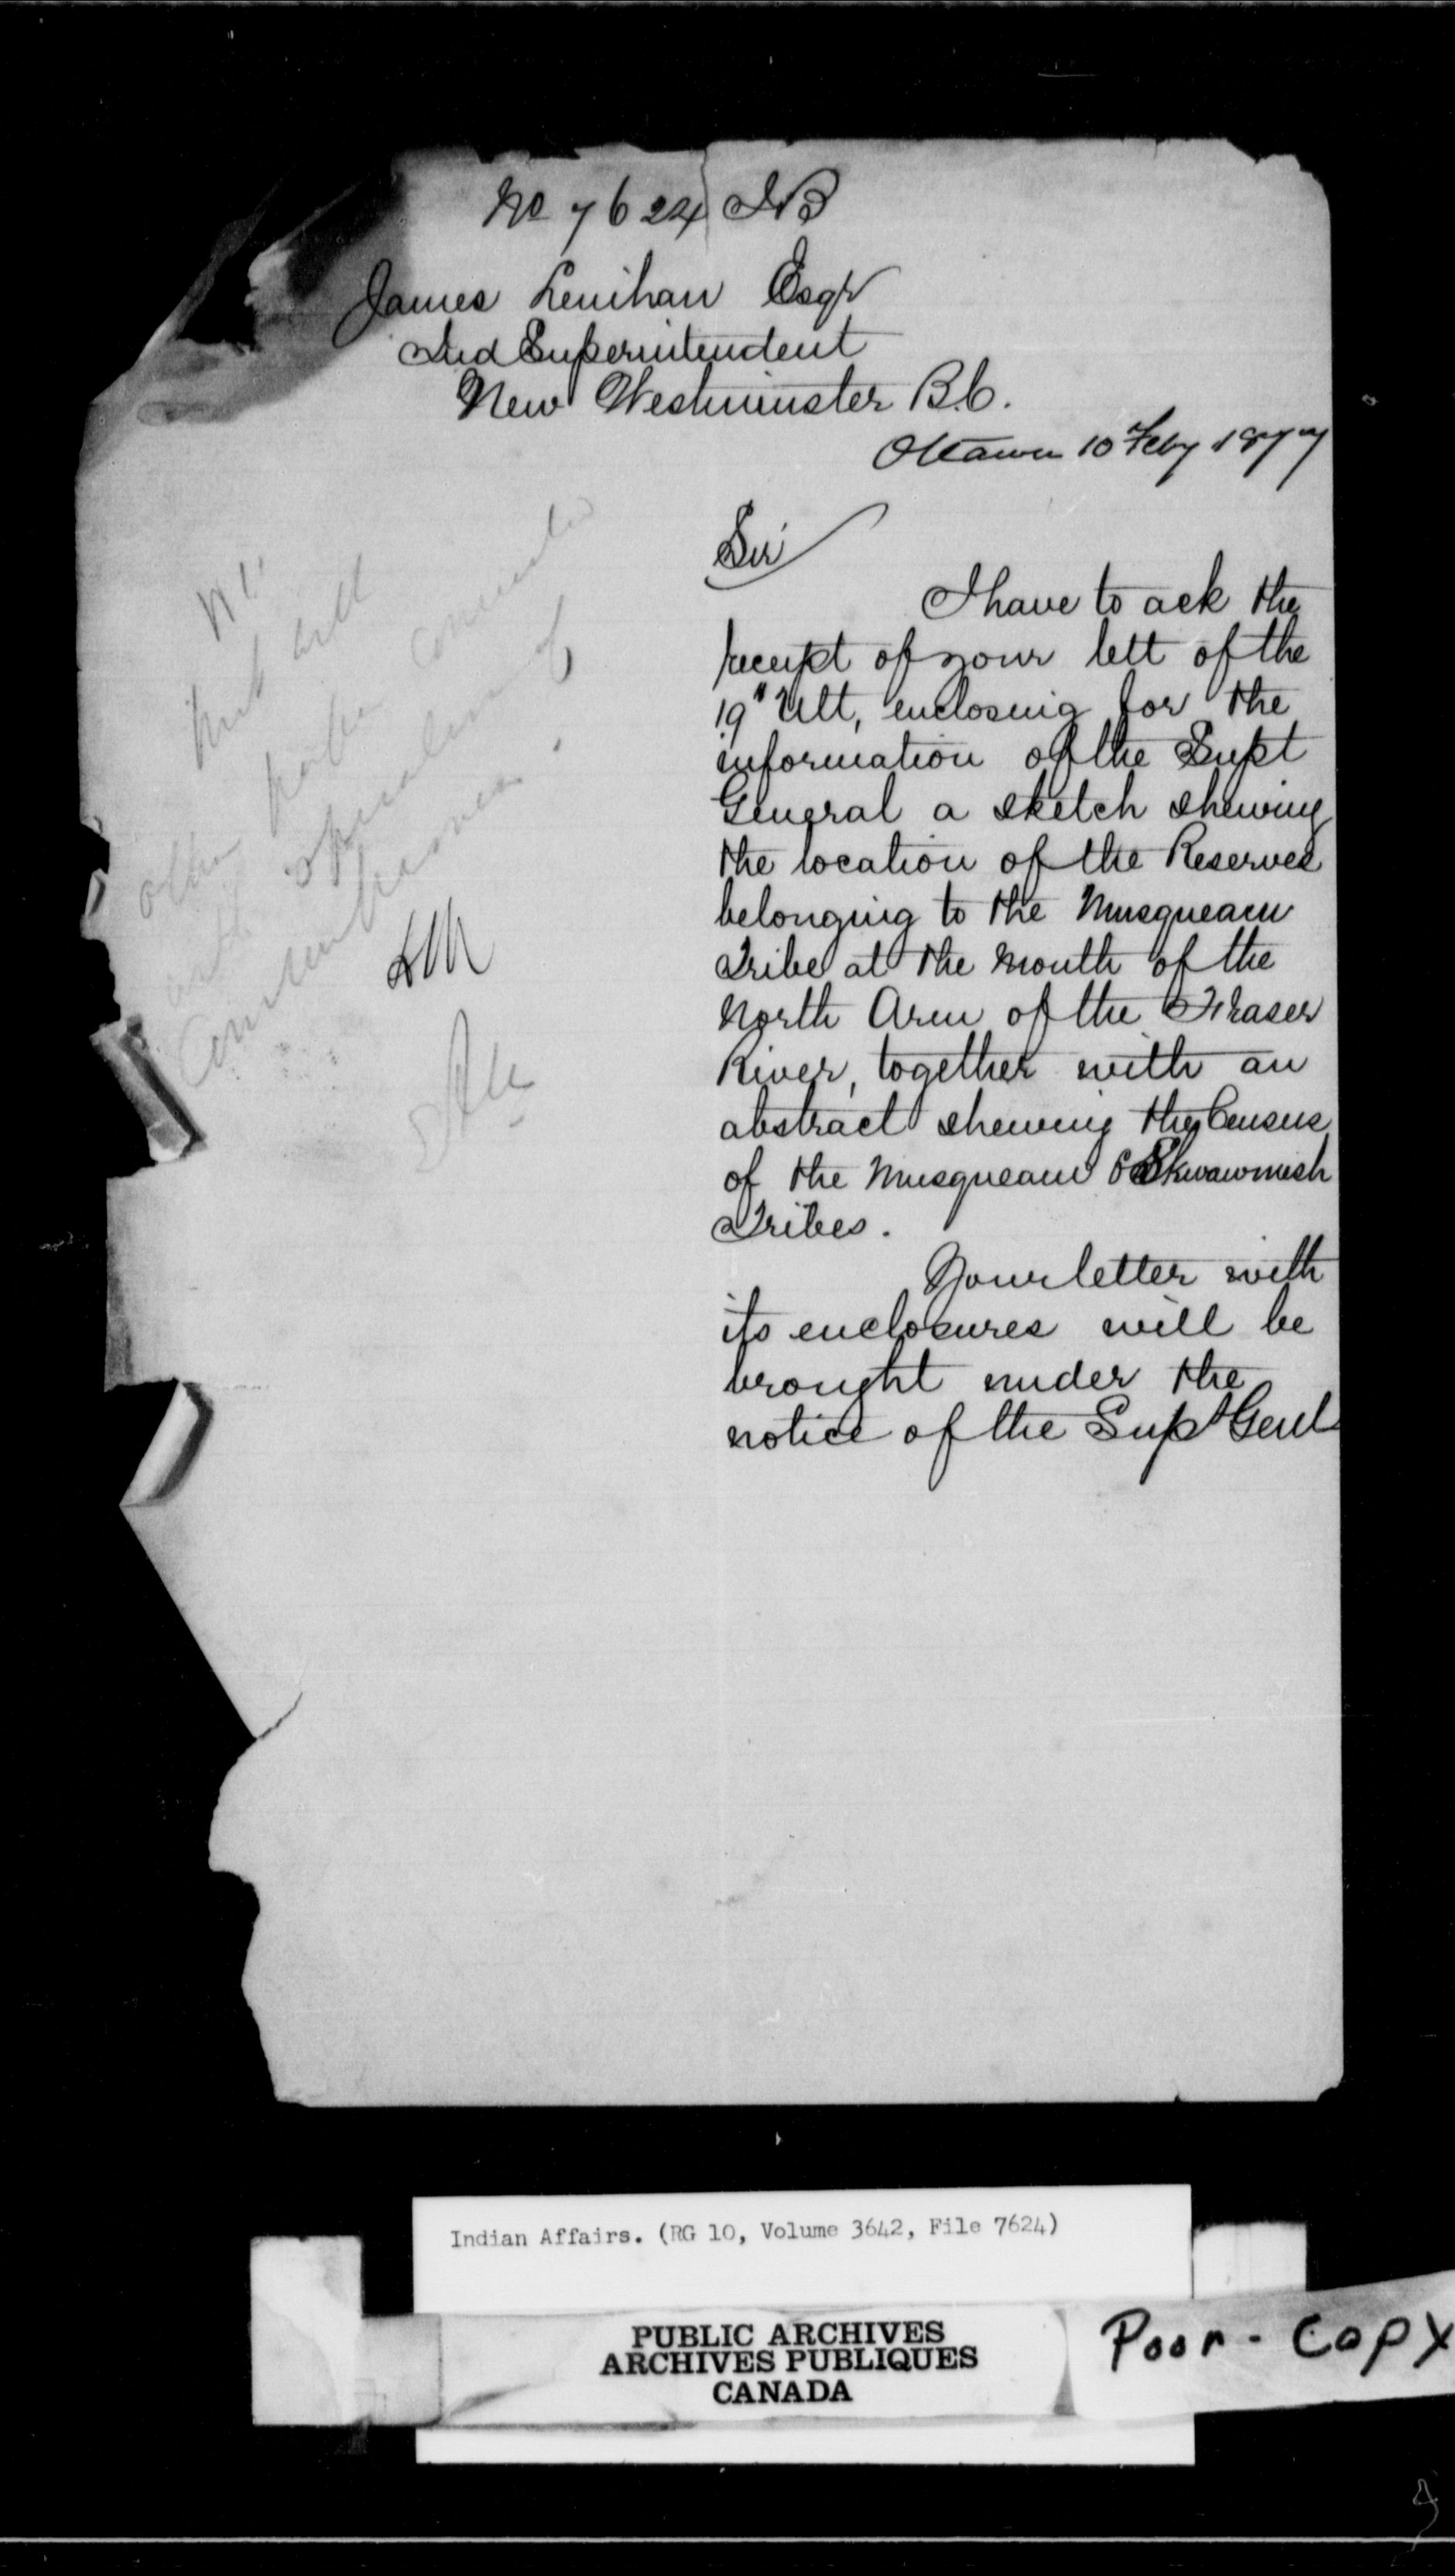 No 7624 IB
James Lenihan Esqr
Ind Superintendent
New Westminster B.C.
Ottawa 10 Feby 1877
Sir
I have to ack the
receipt of your lett of the
19" Ult, enclosing for the
information of the Supt
General a sketch shewing
the location of the Reserves
belonging to the Musqueam
Tribe at the mouth of the
North Arm of the Fraser
River, together with an
abstract shewing the Census
of the Musqueam & Skwawmish
Tribes.
Your letter with
its enclosures will be
brought under the
notice of the Supt Genl
with
other
operations of
Indian Affairs. (RG 10, Volume 3642, File 7624)
PUBLIC ARCHIVES
ARCHIVES PUBLIQUES
CANADA
Poor - Copy